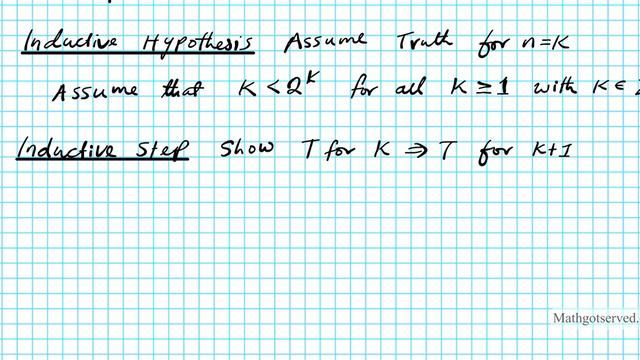 Inductive Hypothesis Assume Truth for n=k
Assume that k < 2^k for all k ≥ 1 with k ∈
Inductive Step Show T for k ⇒ T for k+1
Mathgotserved.